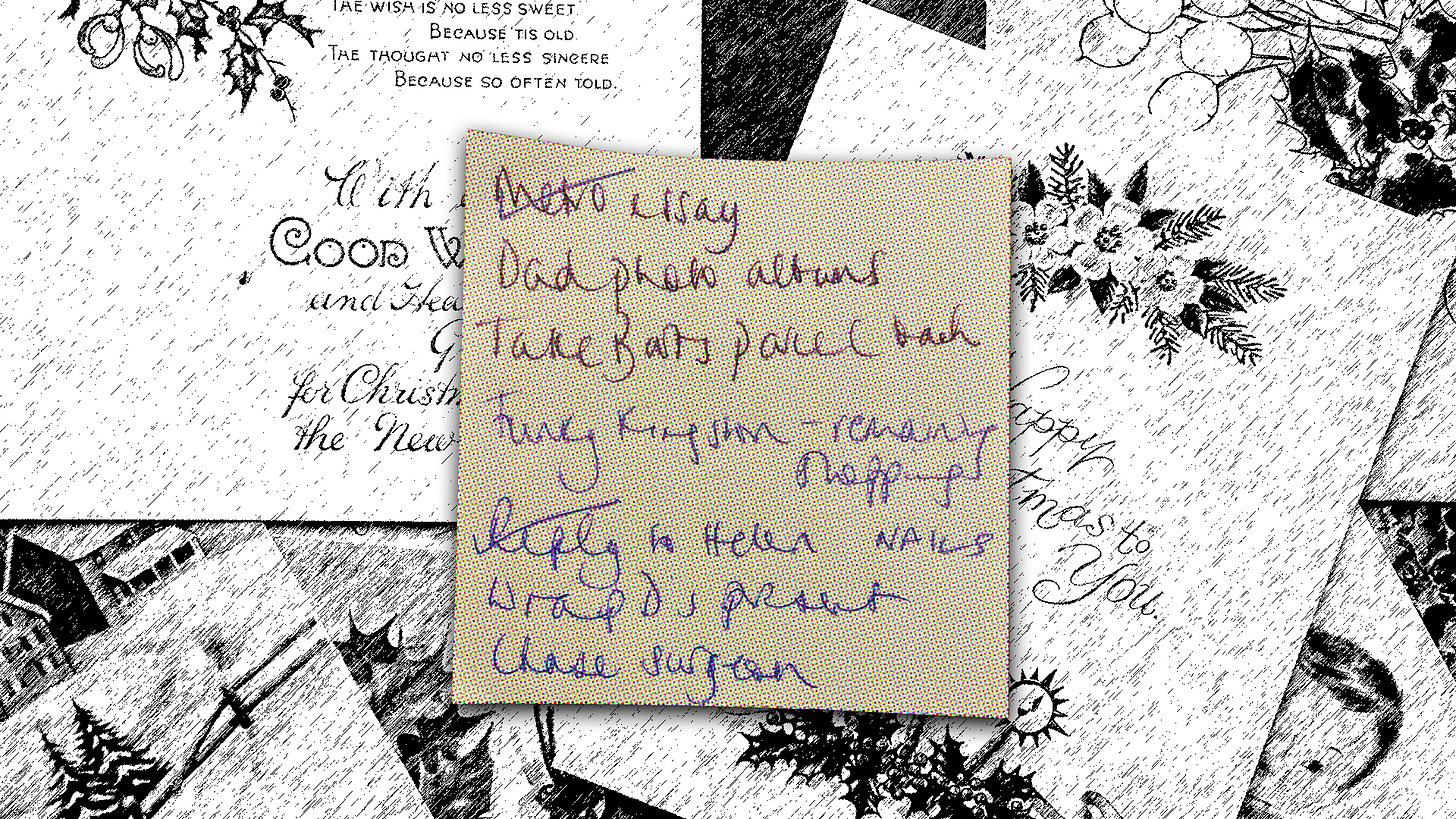 THE WISH IS NO LESS SWEET
BECAUSE 'TIS OLD.
THE THOUGHT NO LESS SINCERE
BECAUSE SO OFTEN TOLD.
With
GOOD
and
for
the New
essay
Dad photo albums
Take parcel back
Kingston - remaining
shopping
Reply to Helen NAILS
Wrap D's present
Chase surgeon
to
You.